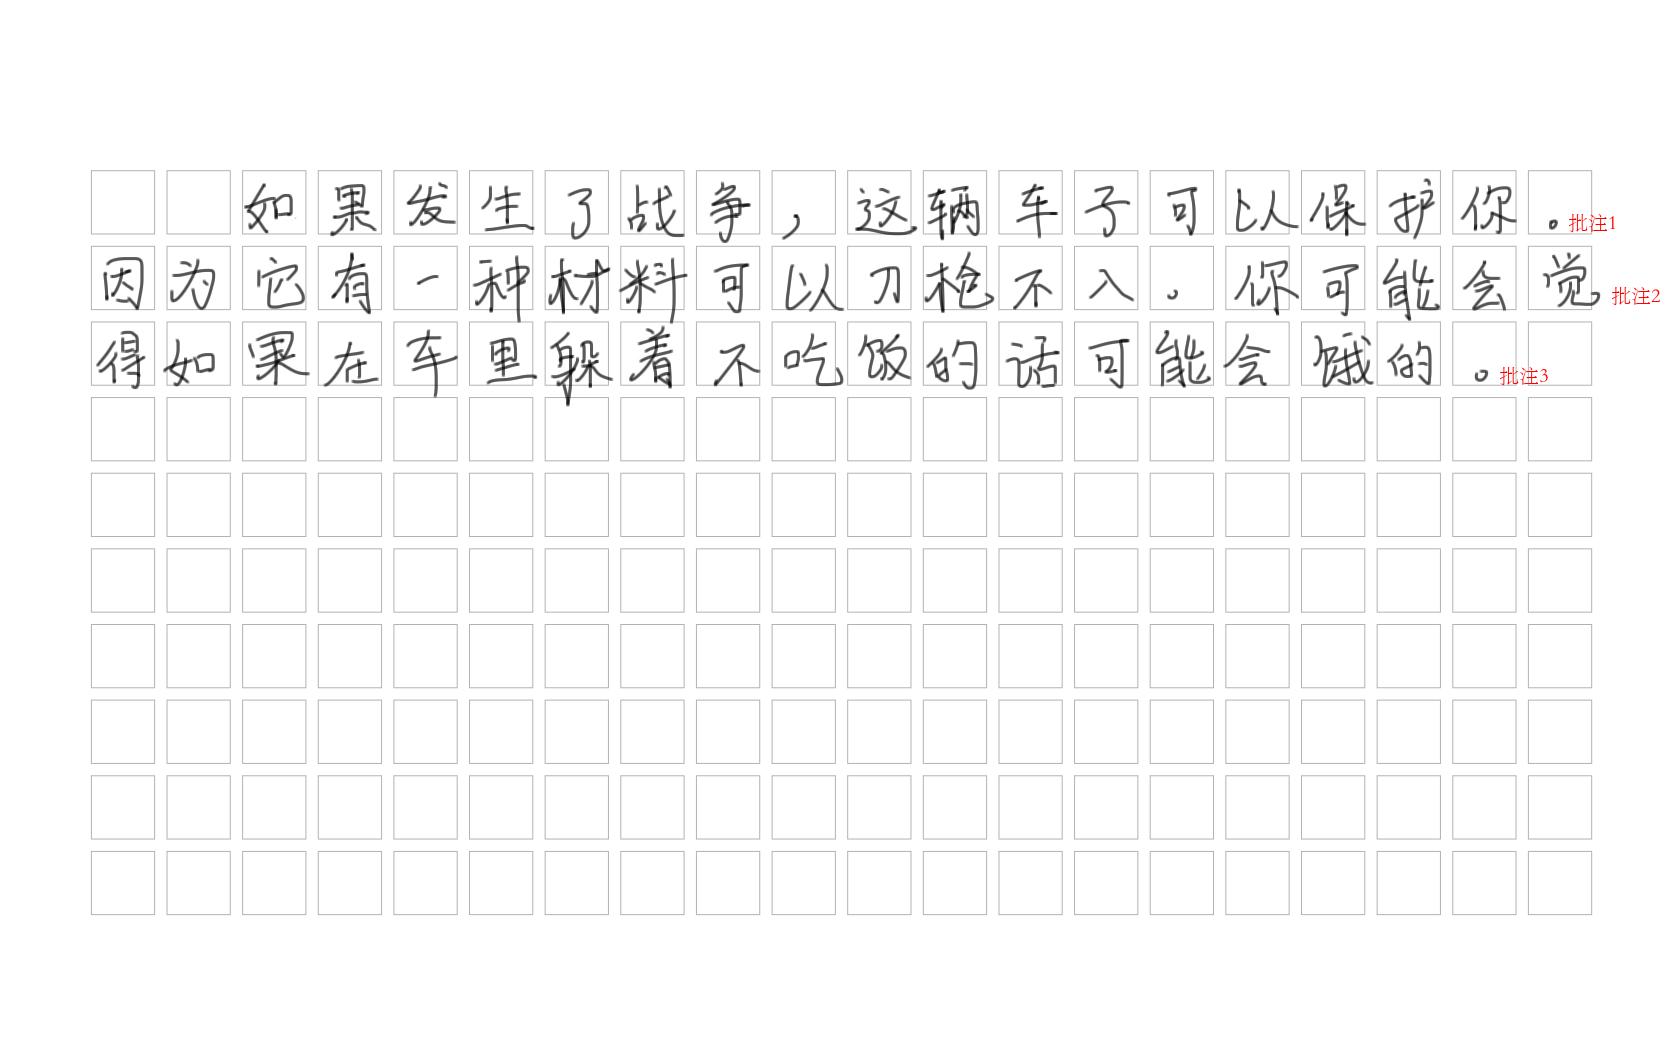 如果发生了战争，这辆车子可以保护你。批注1
因为它有一种材料可以刀枪不入。你可能会觉批注2
得如果在车里躲着不吃饭的话可能会饿的。批注3